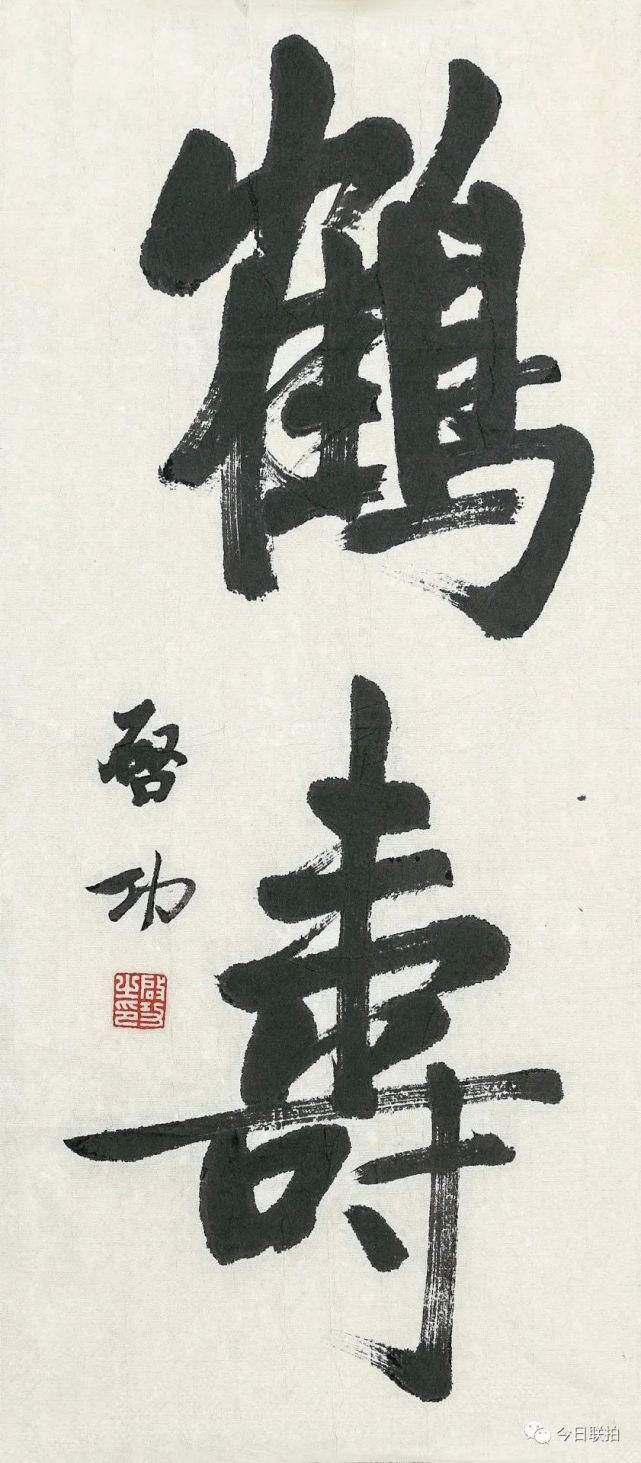 鶴壽
啓功
今日联拍